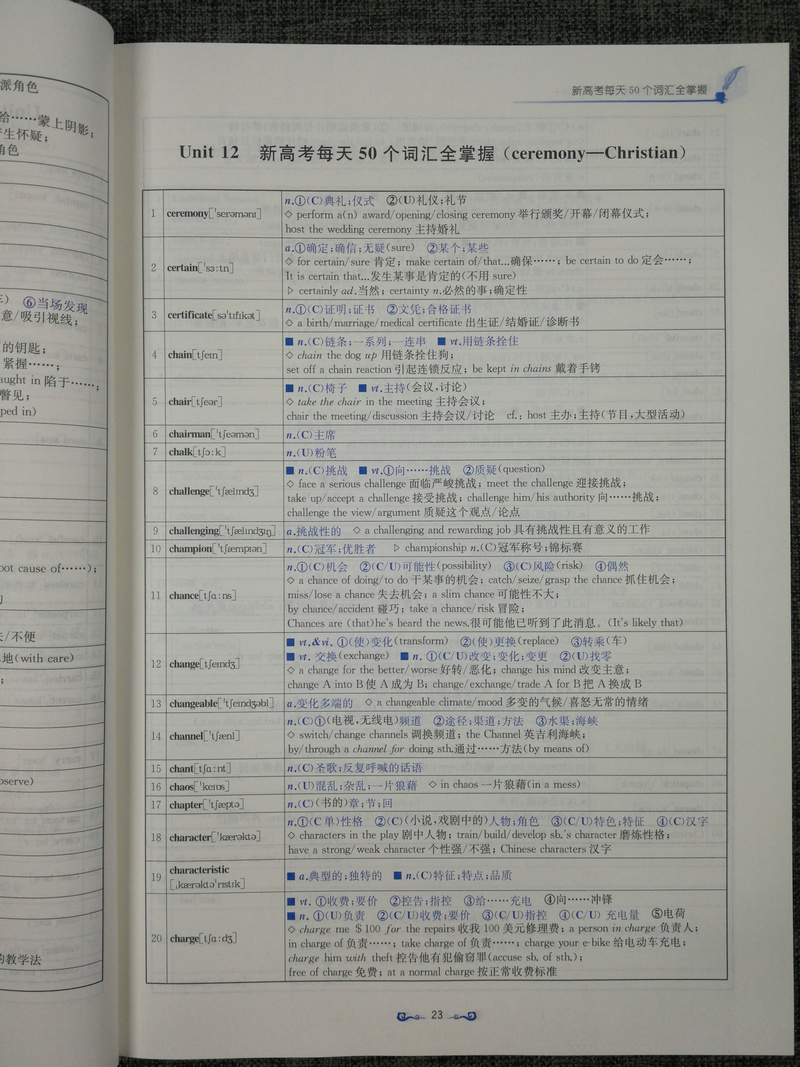 派角色
给……蒙上阴影;
产生怀疑;
角色
⑥当场发现
意/吸引视线;
的钥匙;
紧握……;
aught in 陷于……;
瞥见;
ped in)
oot cause of……);
/不便
地(with care)
;
bserve)
的教学法
新高考每天50个词汇全掌握
Unit 12 新高考每天50个词汇全掌握(ceremony—Christian)
1 ceremony[ˈserəmənɪ]
n.①(C)典礼;仪式 ②(U)礼仪;礼节
◇ perform a(n) award/opening/closing ceremony 举行颁奖/开幕/闭幕仪式;
host the wedding ceremony 主持婚礼
2 certain[ˈsɜːtn]
a.①确定;确信;无疑(sure) ②某个;某些
◇ for certain/sure 肯定; make certain of/that…确保……; be certain to do 定会……;
It is certain that…发生某事是肯定的(不用 sure)
▷ certainly ad.当然; certainty n.必然的事;确定性
3 certificate[səˈtɪfɪkət]
n.①(C)证明;证书 ②文凭;合格证书
◇ a birth/marriage/medical certificate 出生证/结婚证/诊断书
4 chain[tʃeɪn]
■ n.(C)链条;一系列;一连串 ■ vt.用链条拴住
◇ chain the dog up 用链条拴住狗;
set off a chain reaction 引起连锁反应; be kept in chains 戴着手铐
5 chair[tʃeər]
■ n.(C)椅子 ■ vt.主持(会议,讨论)
◇ take the chair in the meeting 主持会议;
chair the meeting/discussion 主持会议/讨论 cf.: host 主办;主持(节目,大型活动)
6 chairman[ˈtʃeəmən] n.(C)主席
7 chalk[tʃɔːk] n.(U)粉笔
8 challenge[ˈtʃælɪndʒ]
■ n.(C)挑战 ■ vt.①向……挑战 ②质疑(question)
◇ face a serious challenge 面临严峻挑战; meet the challenge 迎接挑战;
take up/accept a challenge 接受挑战; challenge him/his authority 向……挑战;
challenge the view/argument 质疑这个观点/论点
9 challenging[ˈtʃælɪndʒɪŋ] a.挑战性的 ◇ a challenging and rewarding job 具有挑战性且有意义的工作
10 champion[ˈtʃæmpɪən] n.(C)冠军;优胜者 ▷ championship n.(C)冠军称号;锦标赛
11 chance[tʃɑːns]
n.①(C)机会 ②(C/U)可能性(possibility) ③(C)风险(risk) ④偶然
◇ a chance of doing/to do 干某事的机会; catch/seize/grasp the chance 抓住机会;
miss/lose a chance 失去机会; a slim chance 可能性不大;
by chance/accident 碰巧; take a chance/risk 冒险;
Chances are (that)he's heard the news.很可能他已听到了此消息。(It's likely that)
12 change[tʃeɪndʒ]
■ vt.&vi. ①(使)变化(transform) ②(使)更换(replace) ③转乘(车)
■ vt. 交换(exchange) ■ n. ①(C/U)改变;变化;变更 ②(U)找零
◇ a change for the better/worse 好转/恶化; change his mind 改变主意;
change A into B 使 A 成为 B; change/exchange/trade A for B 把 A 换成 B
13 changeable[ˈtʃeɪndʒəbl] a.变化多端的 ◇ a changeable climate/mood 多变的气候/喜怒无常的情绪
14 channel[ˈtʃænl]
n.(C)①(电视,无线电)频道 ②途径;渠道;方法 ③水渠;海峡
◇ switch/change channels 调换频道; the Channel 英吉利海峡;
by/through a channel for doing sth.通过……方法(by means of)
15 chant[tʃɑːnt] n.(C)圣歌;反复呼喊的话语
16 chaos[ˈkeɪɒs] n.(U)混乱;杂乱;一片狼藉 ◇ in chaos 一片狼藉(in a mess)
17 chapter[ˈtʃæptə] n.(C)(书的)章;节;回
18 character[ˈkærəktə]
n.①(C 单)性格 ②(C)(小说,戏剧中的)人物;角色 ③(C/U)特色;特征 ④(C)汉字
◇ characters in the play 剧中人物; train/build/develop sb.'s character 磨炼性格;
have a strong/weak character 个性强/不强; Chinese characters 汉字
19 characteristic
[ˌkærəktəˈrɪstɪk]
■ a.典型的;独特的 ■ n.(C)特征;特点;品质
20 charge[tʃɑːdʒ]
■ vt. ①收费;要价 ②控告;指控 ③给……充电 ④向……冲锋
■ n. ①(U)负责 ②(C/U)收费;要价 ③(C/U)指控 ④(C/U) 充电量 ⑤电荷
◇ charge me $100 for the repairs 收我 100 美元修理费; a person in charge 负责人;
in charge of 负责……; take charge of 负责……; charge your e-bike 给电动车充电;
charge him with theft 控告他有犯偷窃罪(accuse sb. of sth.);
free of charge 免费; at a normal charge 按正常收费标准
23